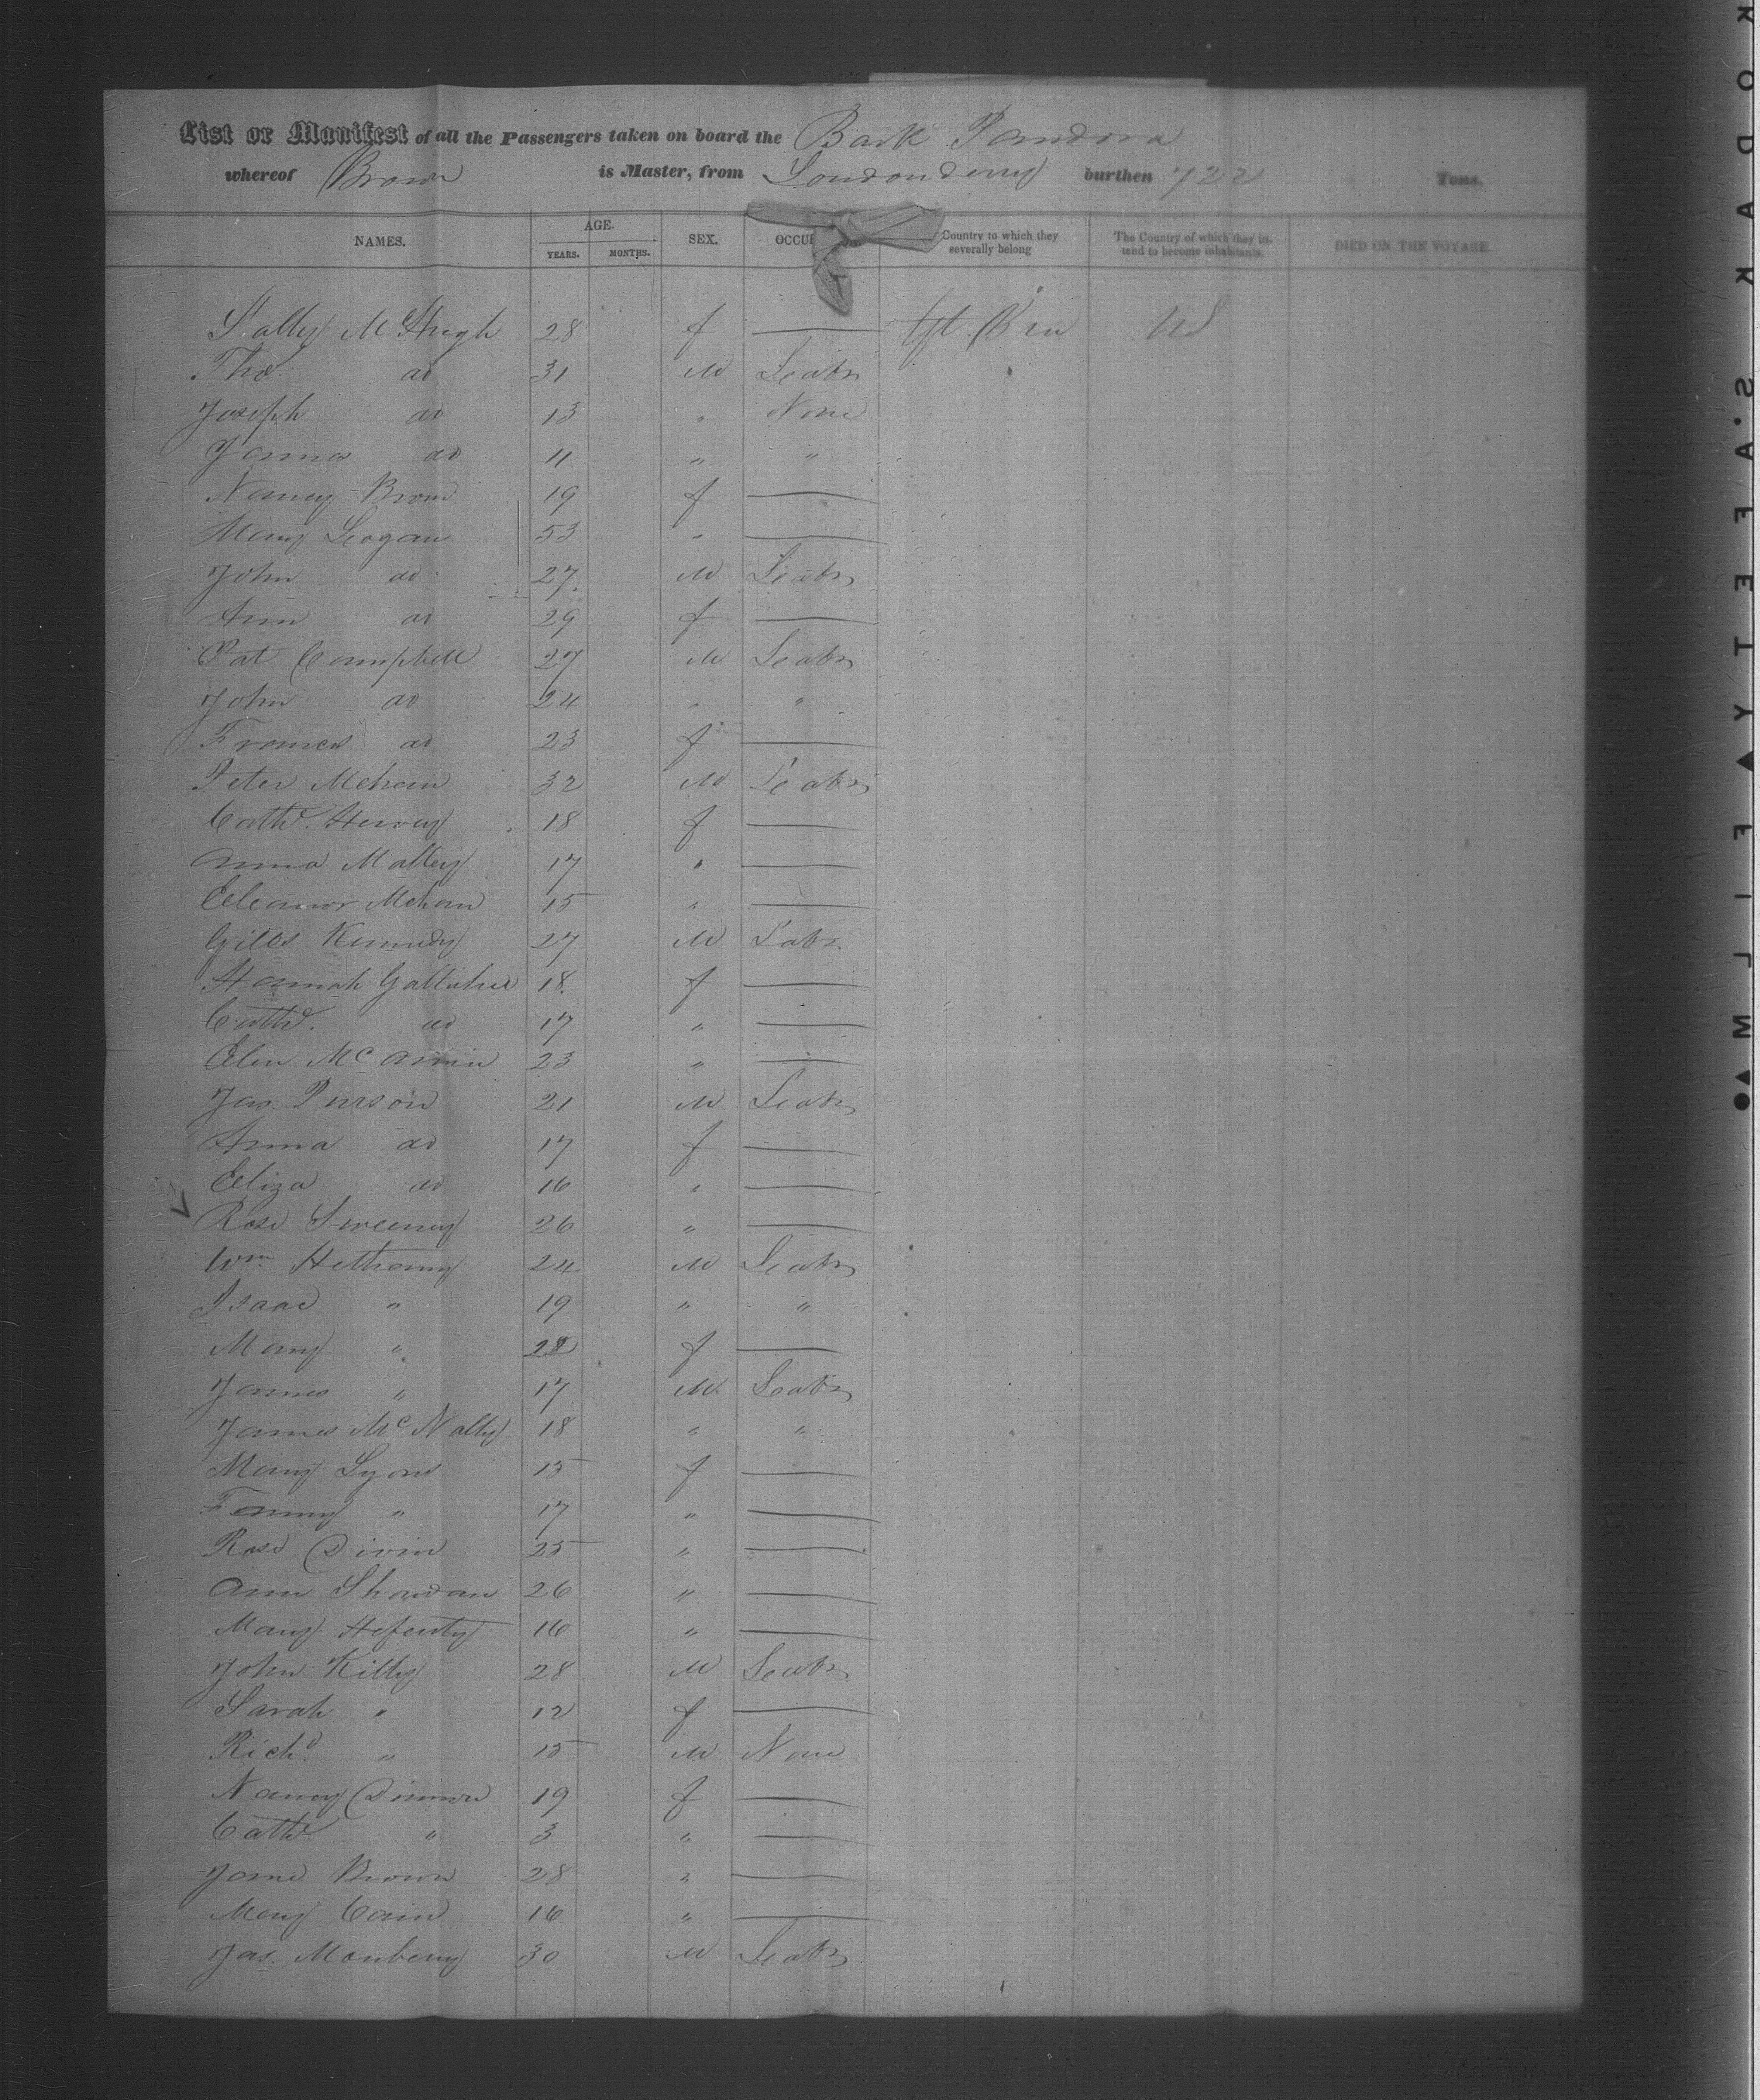 List or Manifest of all the Passengers taken on board the Bark Pandora
whereof Brown is Master, from Londonderry burthen 722 Tons.
NAMES. AGE. YEARS. MONTHS. SEX. OCCUP Country to which they severally belong The Country of which they intend to become inhabitants. DIED ON THE VOYAGE.
Sally McHugh 28 f — Gt Bri US
Tho do 31 M Labr
Joseph do 13 " None
James do 11 " "
Nancy Brown 19 f —
Mary Logan 53 " —
John do 27 M Labr
Ann do 29 f —
Pat Campbell 27 M Labr
John do 24 " "
Frances do 23 f —
Peter Mehan 32 M Labr
Cathe. Harvey 18 f —
Anna Malley 17 " —
Eleanor Mehan 15 " —
Giles Kennedy 27 M Labr
Hannah Gallaher 18 f —
Cathe. do 17 " —
Elen Mc 23 " —
Jas Pearson 21 M Labr
Anna do 17 f —
Eliza do 16 " —
Rose Sweeney 26 " —
Wm Hetherny 24 M Labr
Isaac " 19 " "
Mary " f —
James " 17 M Labr
James McNalty 18 " "
Mary Lyons 15 f —
Fanny " 17 " —
Rose Divin 25 " —
Ann Shardan 26 " —
Mary Heferty 16 " —
John Kilty 28 M Labr
Sarah " 12 f —
Richd. " 15 M None
Nancy 19 f —
Cathe " 3 " —
Jane Brown 28 " —
Mary Cain 16 " —
Jas. Manberry 30 M Labr
MILFELAY TEEFA'S KANDOR